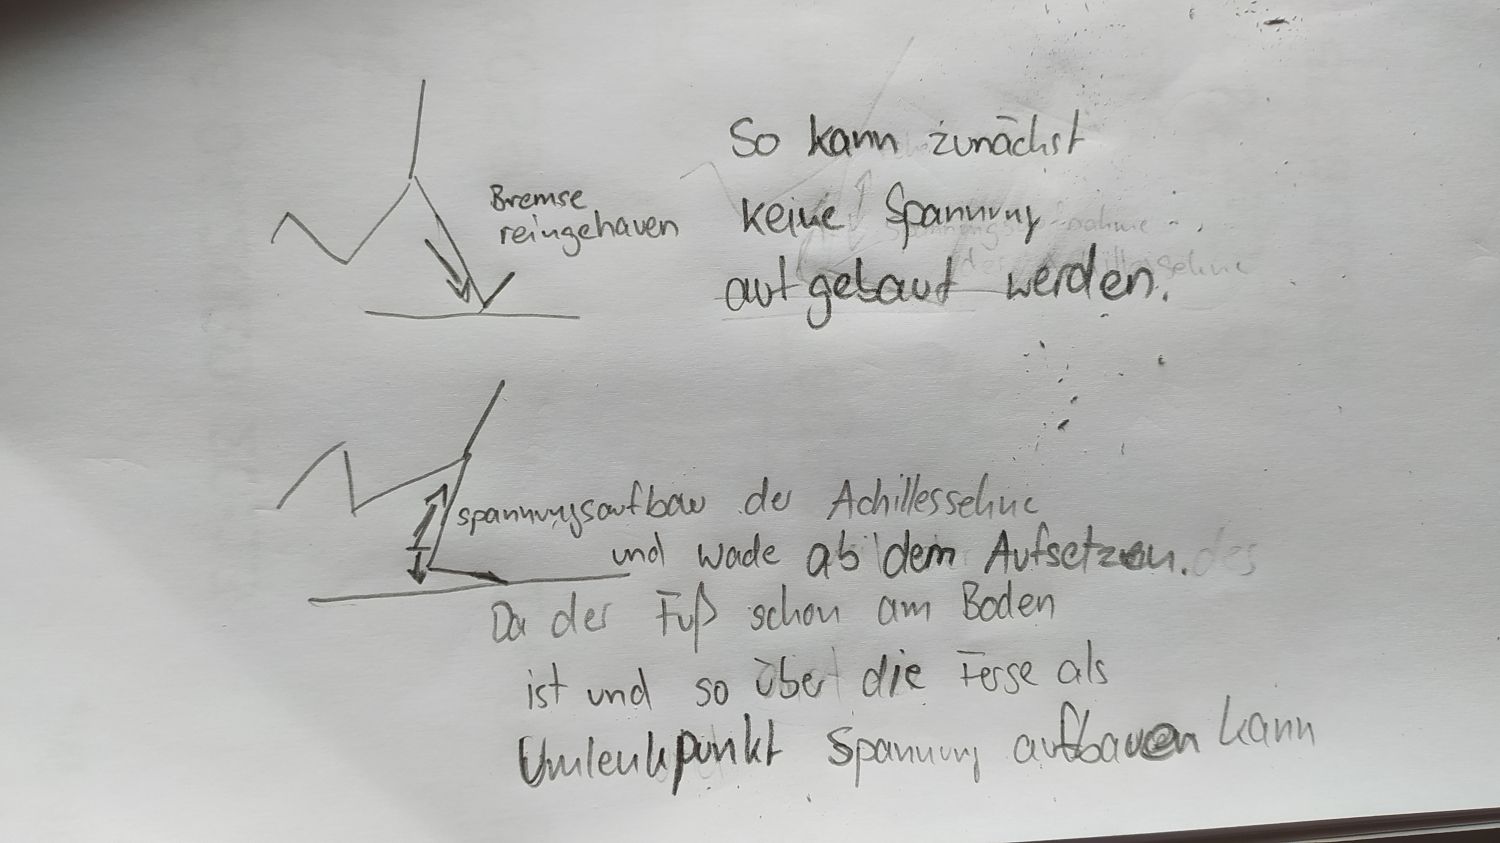 So kann zunächst
Bremse
reingehauen
keine Spannung
aufgebaut werden.
Spannungsaufbau der Achillessehne
und Wade ab dem Aufsetzen. des
Da der Fuß schon am Boden
ist und so über die Ferse als
Umlenkpunkt Spannung aufbauen kann